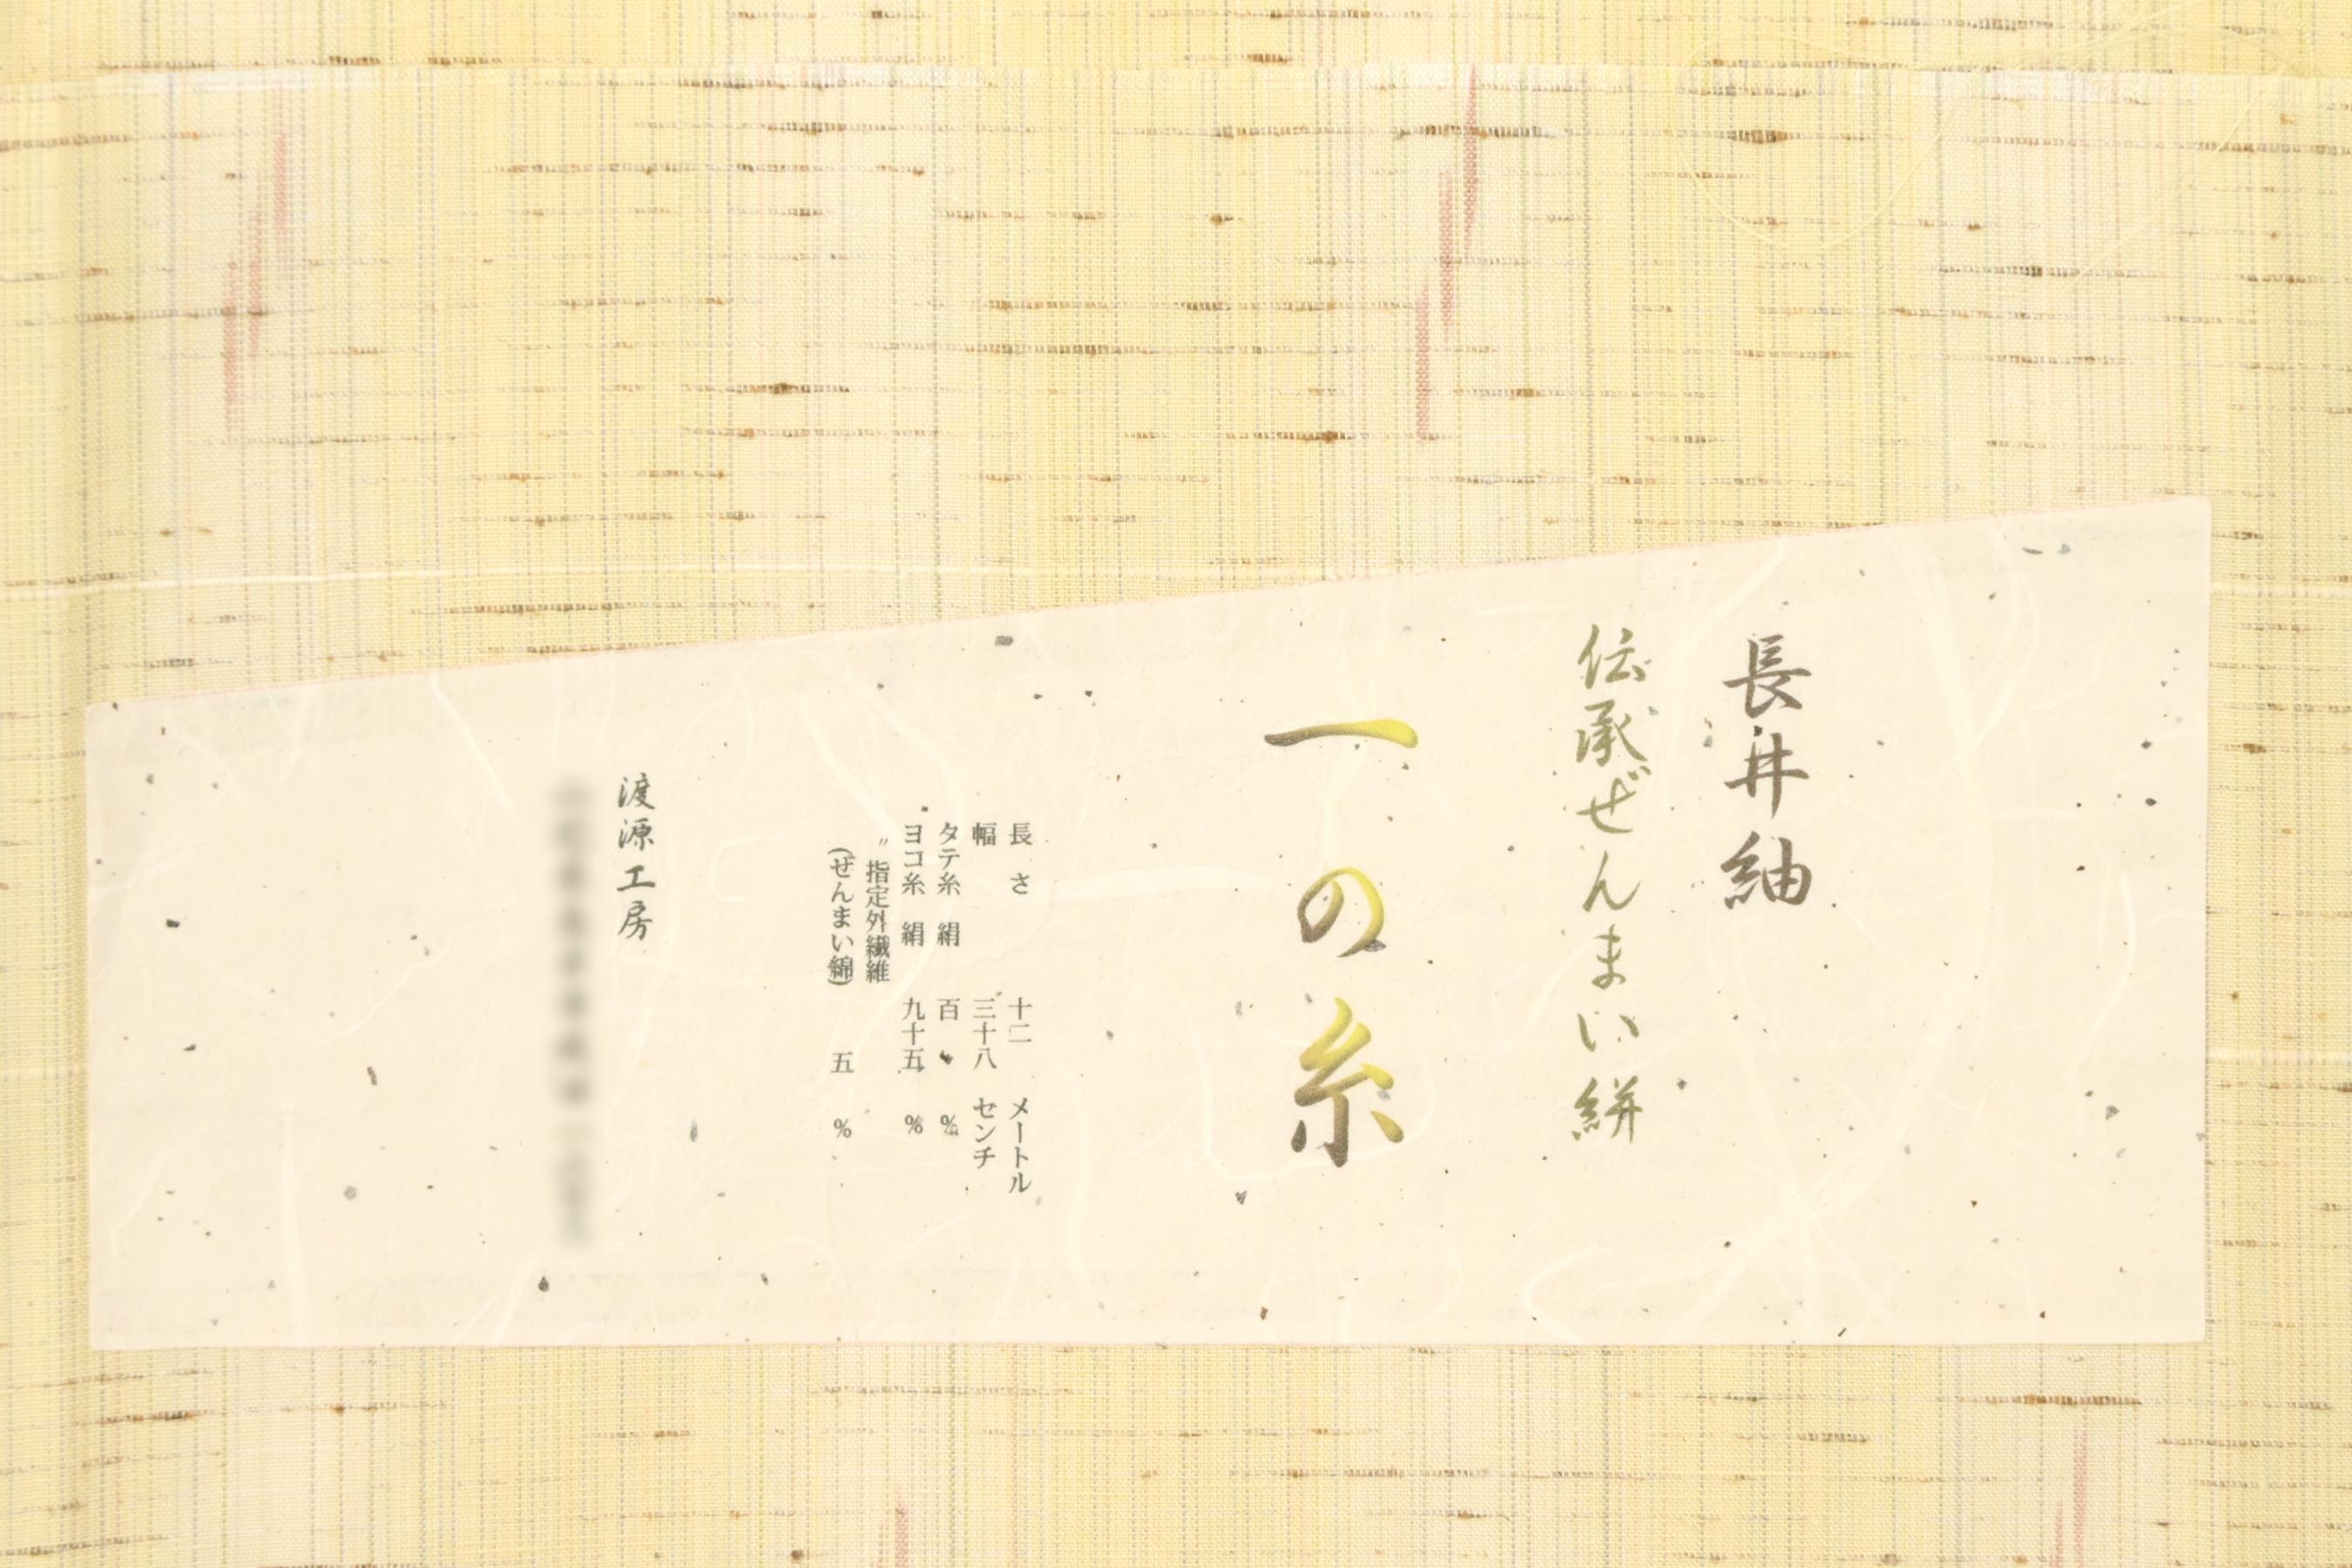 長井紬
伝承ぜんまい絣
一の糸
長さ 十二 メートル
幅 三十八 センチ
タテ糸 絹 百 %
ヨコ糸 絹 九十五 %
〃 指定外繊維
(ぜんまい綿) 五 %
渡源工房